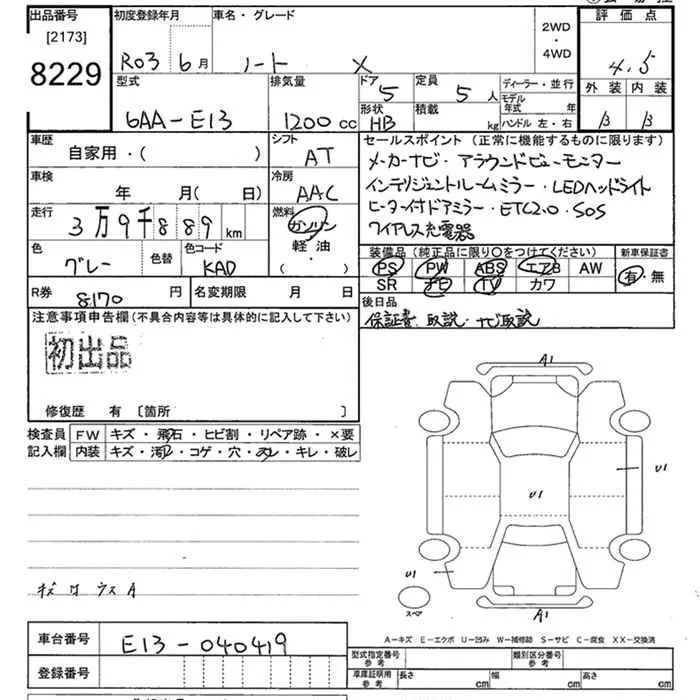 出品番号 初度登録年月 車名・グレード 評価点
[2173]
8229
R03 6月 ノート X 2WD・4WD 4.5
型式 排気量 ドア 定員 ディーラー・並行 外装 内装
6AA-E13 1200cc 5 5人 モデル年式 年 B B
形状 積載 ハンドル 左・右
HB kg
車歴 シフト セールスポイント(正常に機能するものに限ります)
自家用・( ) AT メーカーナビ・アラウンドビューモニター
車検 冷房 インテリジェントルームミラー・LEDヘッドライト
年 月( 日) AAC ヒーター付ドアミラー・ETC2.0・SOS
走行 燃料 ワイヤレス充電器
3万9千889km ガソリン
軽油・
( )
色 色替 色コード 装備品(純正品に限り○をつけてください) 新車保証書
グレー KAD PS PW ABS エアB AW 有・無
SR ナビ TV カワ
R券 8170円 名変期限 月 日 後日品
保証書、取説、ナビ取説
注意事項申告欄(不具合内容等は具体的に記入して下さい)
初出品
修復歴 有 [箇所 ]
検査員 FW キズ・飛石・ヒビ割・リペア跡・×要
記入欄 内装 キズ・汚れ・コゲ・穴・スレ・キレ・破レ
A1
U1
U1
U1
スペア
A1
キズ
ウスA
A-キズ E-エクボ U-凹み W-補修跡 S-サビ C-腐食 XX-交換済
車台番号 E13-040419
型式指定番号 参考 類別区分番号 参考
登録番号 車庫証明用 参考 長さ cm 幅 cm 高さ cm